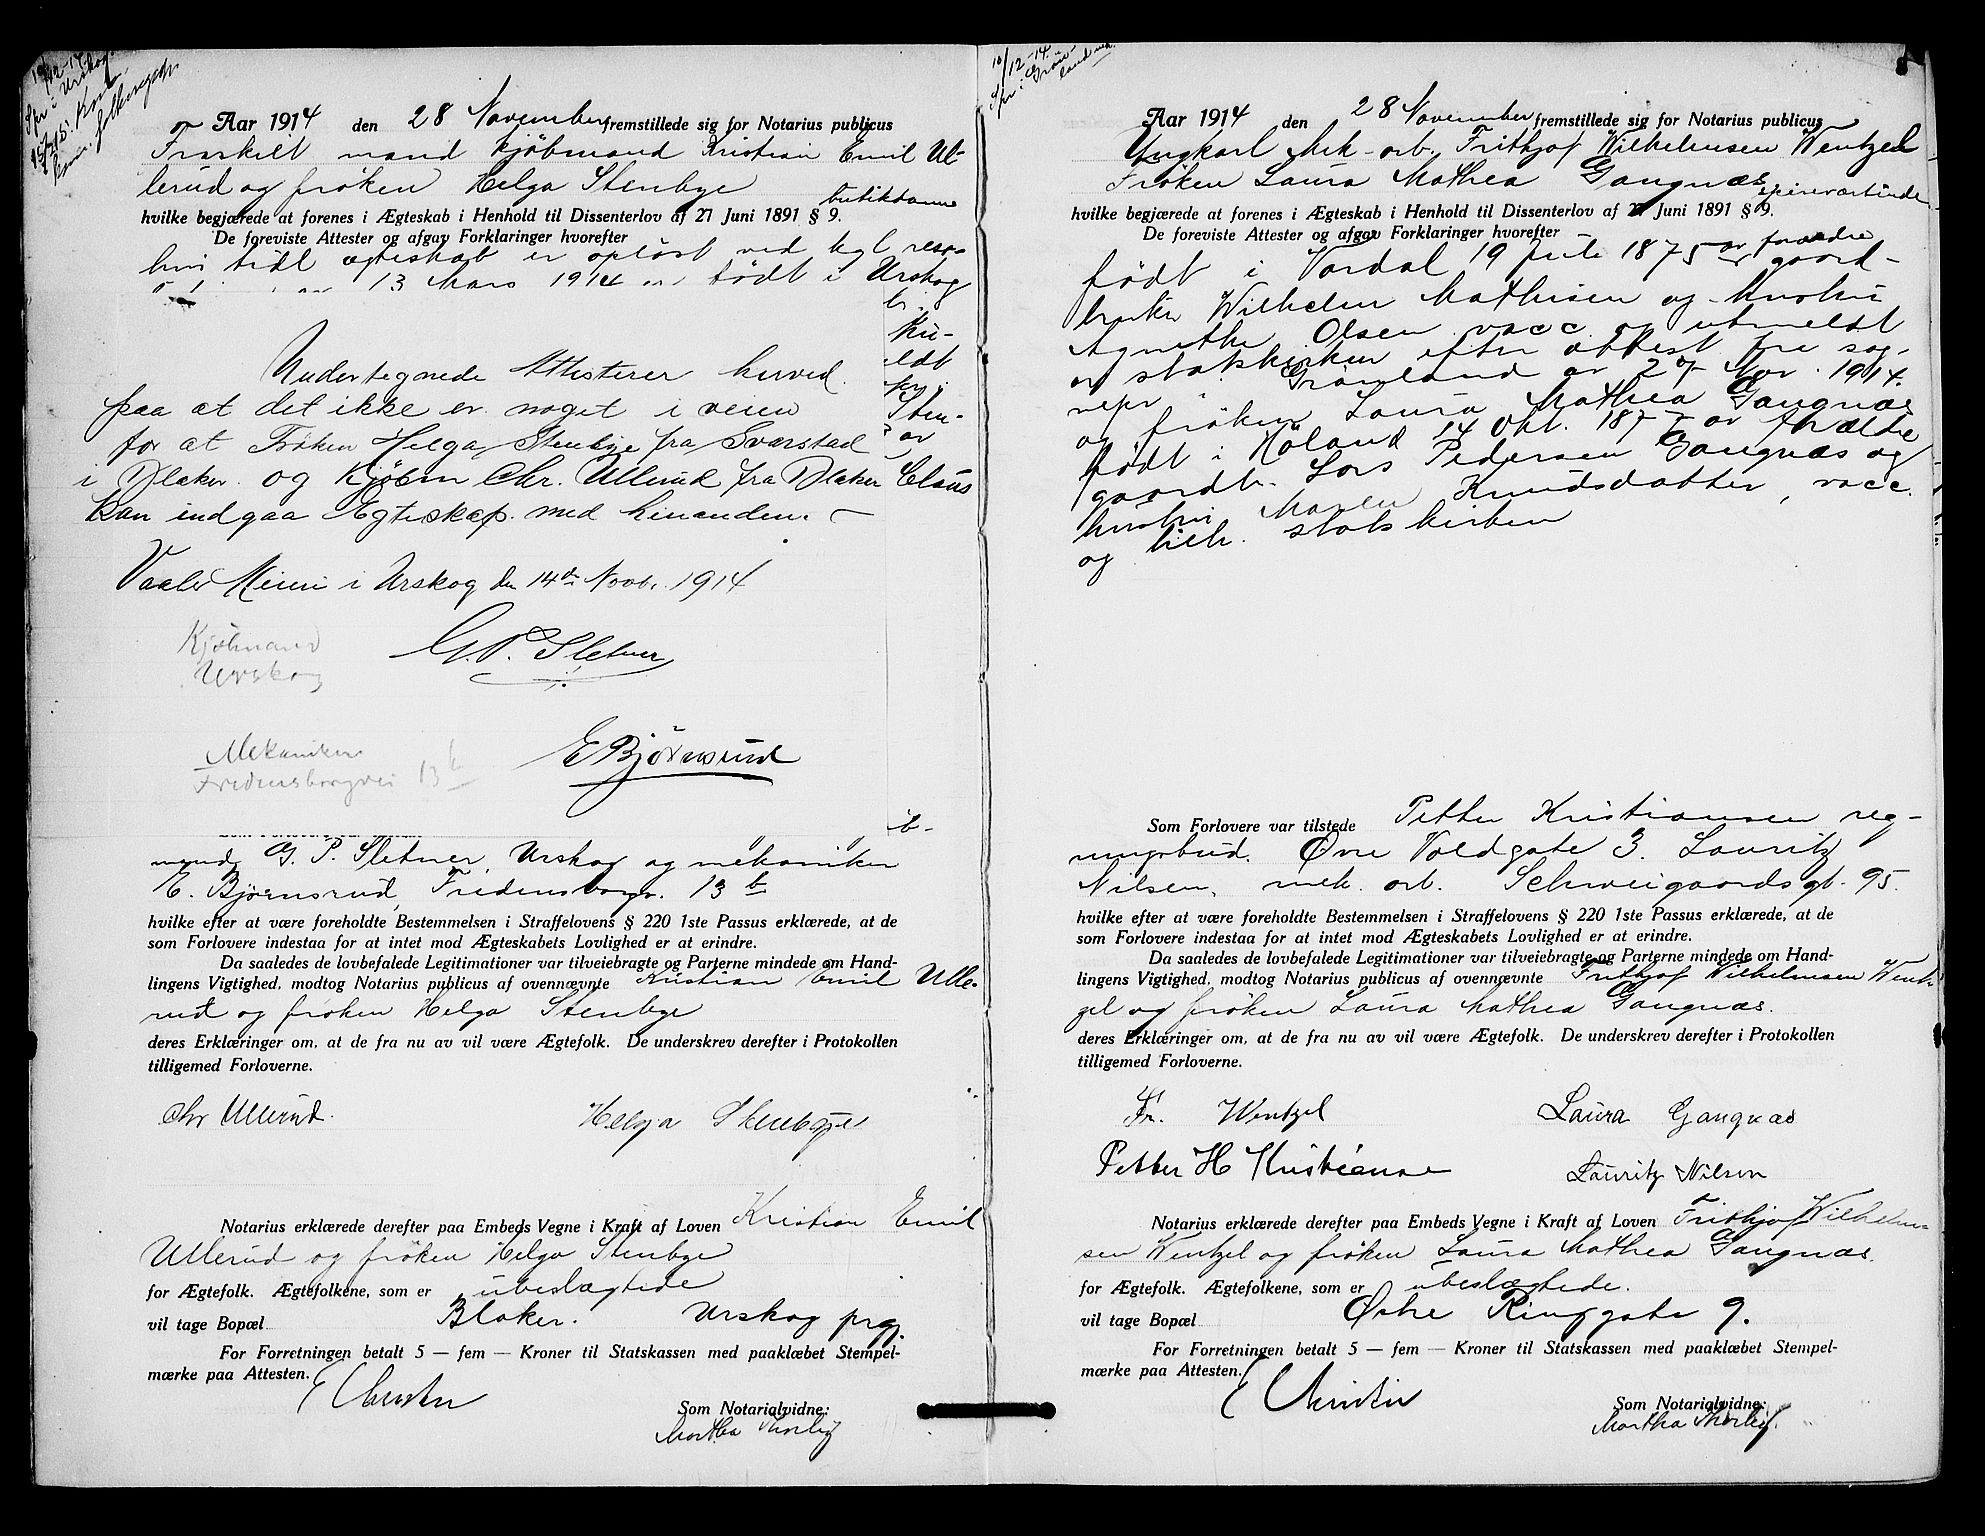 Aar 1914 den 28 November fremstillede sig for Notarius publicus
Fraskilt mand kjöbmand Kristian Emil Ul-
lerud og frøken Helga Stenbye
butikdame
hvilke begjærede at forenes i Ægteskab i Henhold til Dissenterlov af 27 Juni 1891 § 9.
De foreviste Attester og afgav Forklaringer hvorefter
hvis tidl ægteskab er opløst ved kgl reso-
13 Mars 1914 født i Urskog
Undertegnede Attisterer herved
paa at det ikke er noget i veien
for at Frøken Helga Stenbye fra Svarstad
i Blaker og Kjøbm Chr. Ullerud fra Blaker
Kan indgaa Ægteskap med hinanden.
Claus
Vaaler Meieri i Urskog den 14de Novb. 1914
Kjøbmand
Urskog
G. P. Sletner
Mekaniker
Fredensborgvei 13 b
E Bjørnsrud
mand G. P. Sletner, Urskog og mekaniker
E. Bjørnsrud, Fredensborgv. 13 b
hvilke efter at være foreholdte Bestemmelsen i Straffelovens § 220 1ste Passus erklærede, at de
som Forlovere indestaa for at intet mod Ægteskabets Lovlighed er at erindre.
Da saaledes de lovbefalede Legitimationer var tilveiebragte og Parterne mindede om Hand-
lingens Vigtighed, modtog Notarius publicus af ovennævnte Kristian Emil Ulle-
rud og frøken Helga Stenbye
deres Erklæringer om, at de fra nu av vil være Ægtefolk. De underskrev derefter i Protokollen
tilligemed Forloverne.
Chr Ullerud. Helga Stenbye
Notarius erklærede derefter paa Embeds Vegne i Kraft af Loven Kristian Emil
Ullerud og frøken Helga Stenbye
for Ægtefolk. Ægtefolkene, som er ubeslægtede
vil tage Bopæl Blaker. Urskog prgj.
For Forretningen betalt 5 — fem — Kroner til Statskassen med paaklæbet Stempel-
mærke paa Attesten.
Som Notarialvidne:
Martha Thorleif
10/12-14
Spr i Grøn-
land
Aar 1914 den 28 November fremstillede sig for Notarius publicus
Ungkarl Mek. arb. Frithjof Wilhelmsen Wentzel
Frøken Laura Mathea Gangnæs
spiseværtinde
hvilke begjærede at forenes i Ægteskab i Henhold til Dissenterlov af 27 Juni 1891 § 9.
De foreviste Attester og afgav Forklaringer hvorefter
født i Vardal 19 Juli 1875 av forældre gaard-
bruker Wilhelm Mathisen og hustru
Agnethe Olsen vacc og utmeldt
av statskirken efter attest fra sog-
nepr i Grønland av 27 Nov. 1914.
og frøken Laura Mathea Gangnæs
født i Høland 14 Okt. 1877 av forældre
gaardb. Lars Pedersen Gangnæs og
hustru Maren Knudsdatter, vacc.
og tilh. statskirken
Som Forlovere var tilstede Petter Kristiansen reg-
ningsbud. Øvre Voldgate 3. Lauritz
Nilsen, mek. arb. Schweigaardsgt. 95.
hvilke efter at være foreholdte Bestemmelsen i Straffelovens § 220 1ste Passus erklærede, at de
som Forlovere indestaa for at intet mod Ægteskabets Lovlighed er at erindre.
Da saaledes de lovbefalede Legitimationer var tilveiebragte og Parterne mindede om Hand-
lingens Vigtighed, modtog Notarius publicus af ovennævnte Frithjof Wilhelmsen Went-
zel og frøken Laura Mathea Gangnæs.
deres Erklæringer om, at de fra nu av vil være Ægtefolk. De underskrev derefter i Protokollen
tilligemed Forloverne.
Fr. Wentzel Laura Gangnæs
Petter H Kristiansen Lauritz Nilsen
Notarius erklærede derefter paa Embeds Vegne i Kraft af Loven Frithjof Wilhelm-
sen Wentzel og frøken Laura Mathea Gangnæs
for Ægtefolk. Ægtefolkene, som er ubeslægtede.
vil tage Bopæl Østre Ringgate 9.
For Forretningen betalt 5 — fem — Kroner til Statskassen med paaklæbet Stempel-
mærke paa Attesten.
Som Notarialvidne:
Martha Thorleif